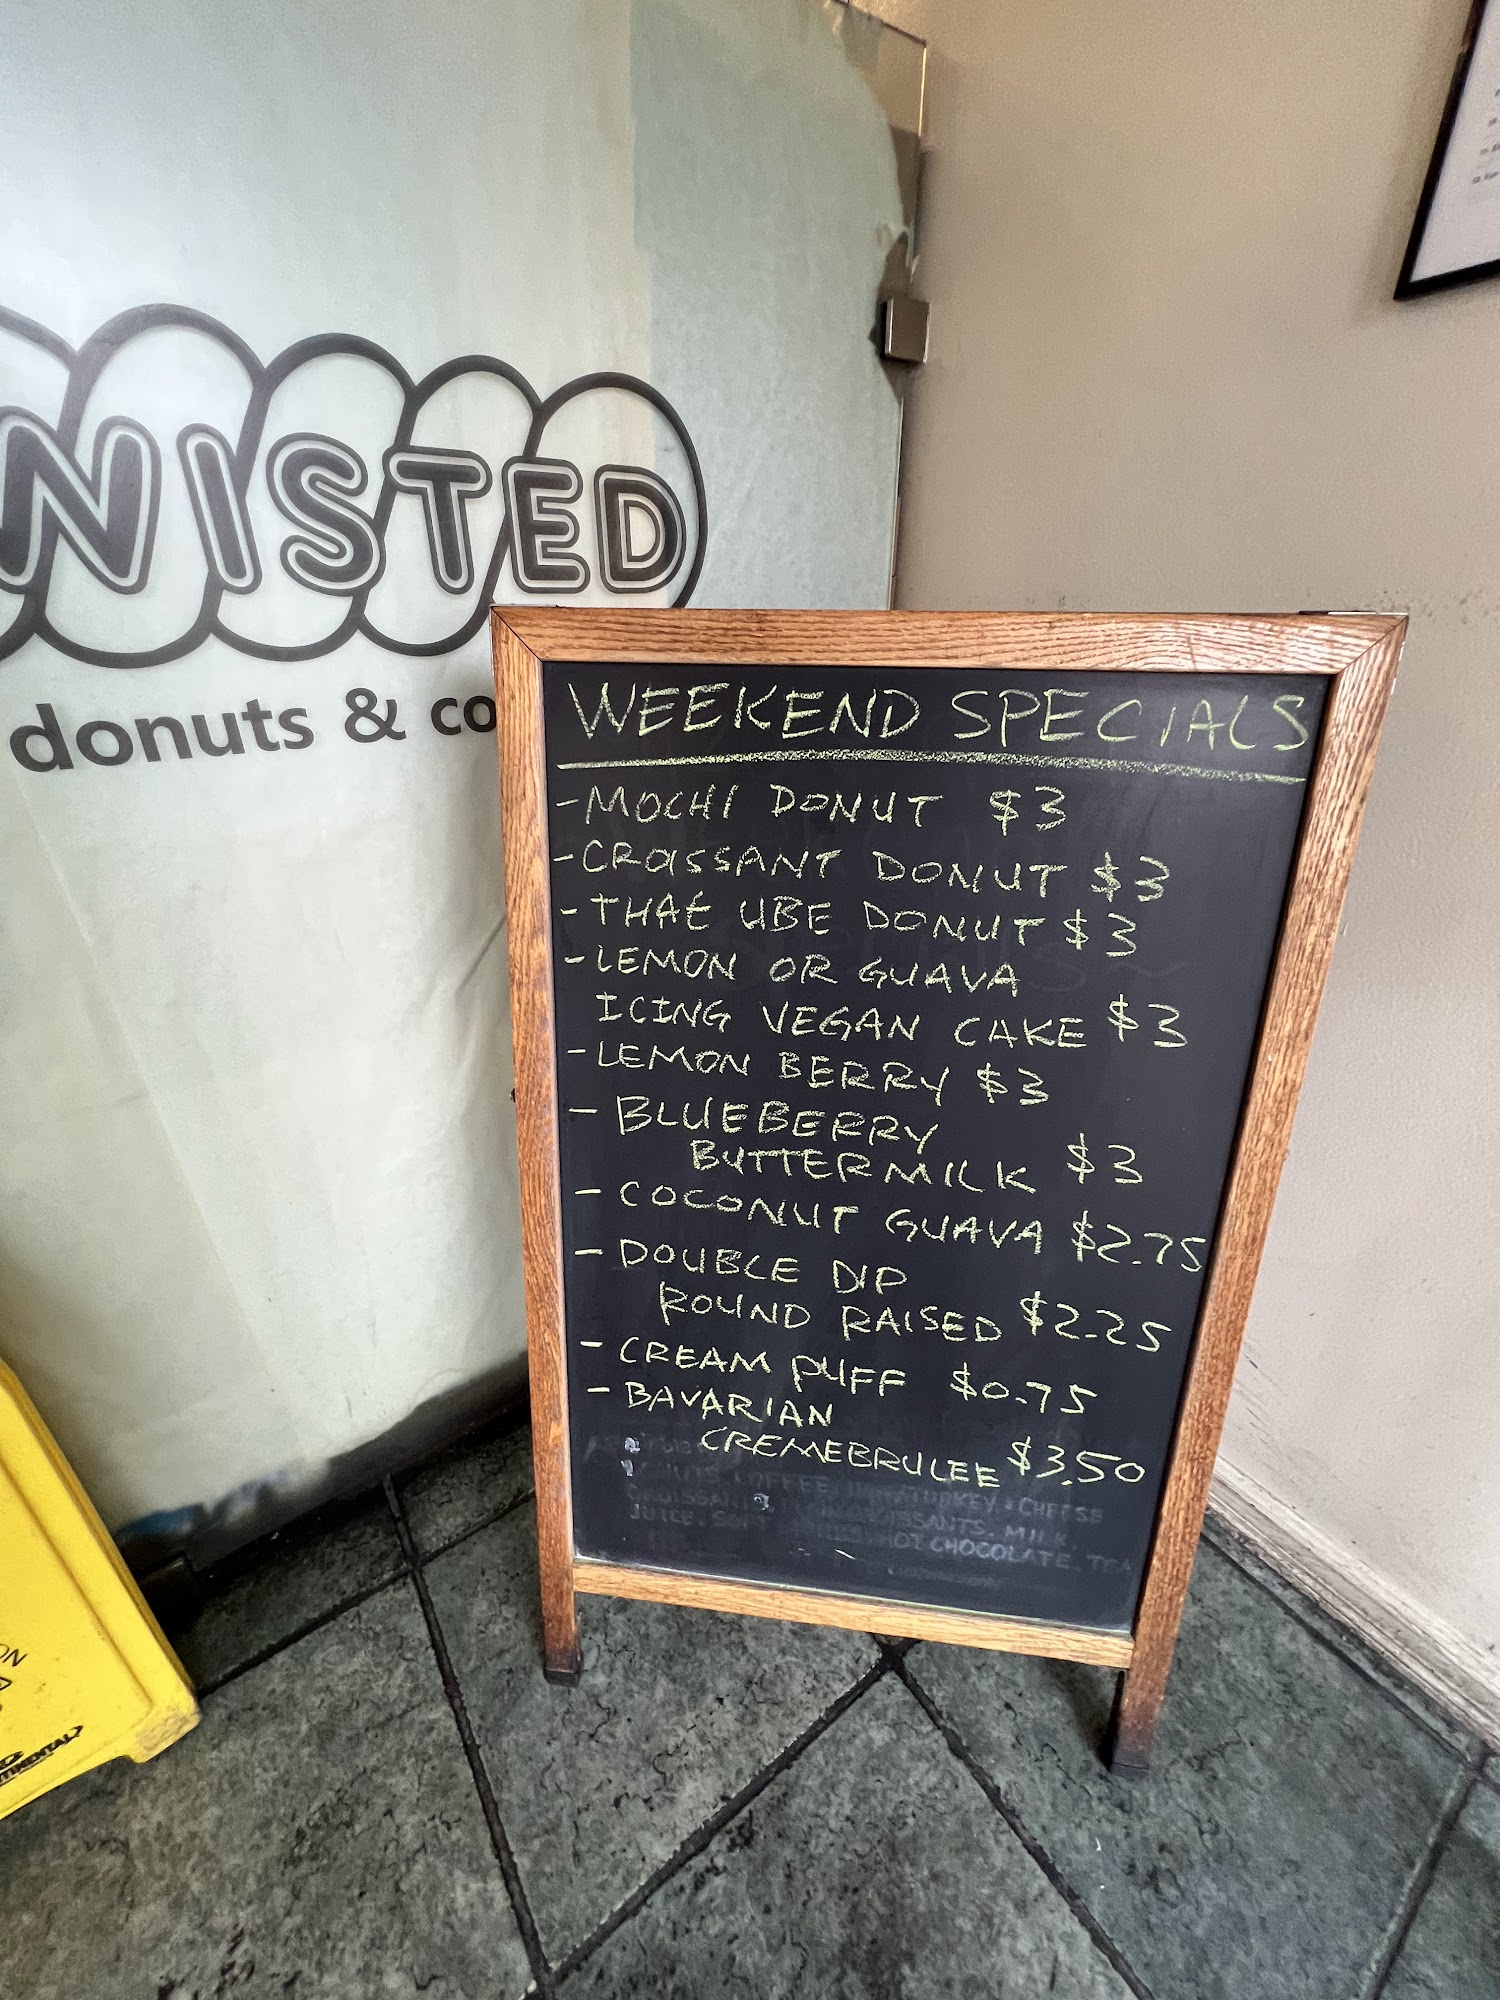 WISTED
donuts & co
WEEKEND SPECIALS
- MOCHI DONUT $3
- CROISSANT DONUT $3
- THAE UBE DONUT $3
- LEMON OR GUAVA
ICING VEGAN CAKE $3
- LEMON BERRY $3
- BLUEBERRY
BUTTERMILK $3
- COCONUT GUAVA $2.75
- DOUBLE DIP
ROUND RAISED $2.25
- CREAM PUFF $0.75
- BAVARIAN
CREMEBRULEE $3.50
COFFEE, TURKEY & CHEESE
CROISSANTS, MILK,
JUICE, HOT CHOCOLATE, TEA